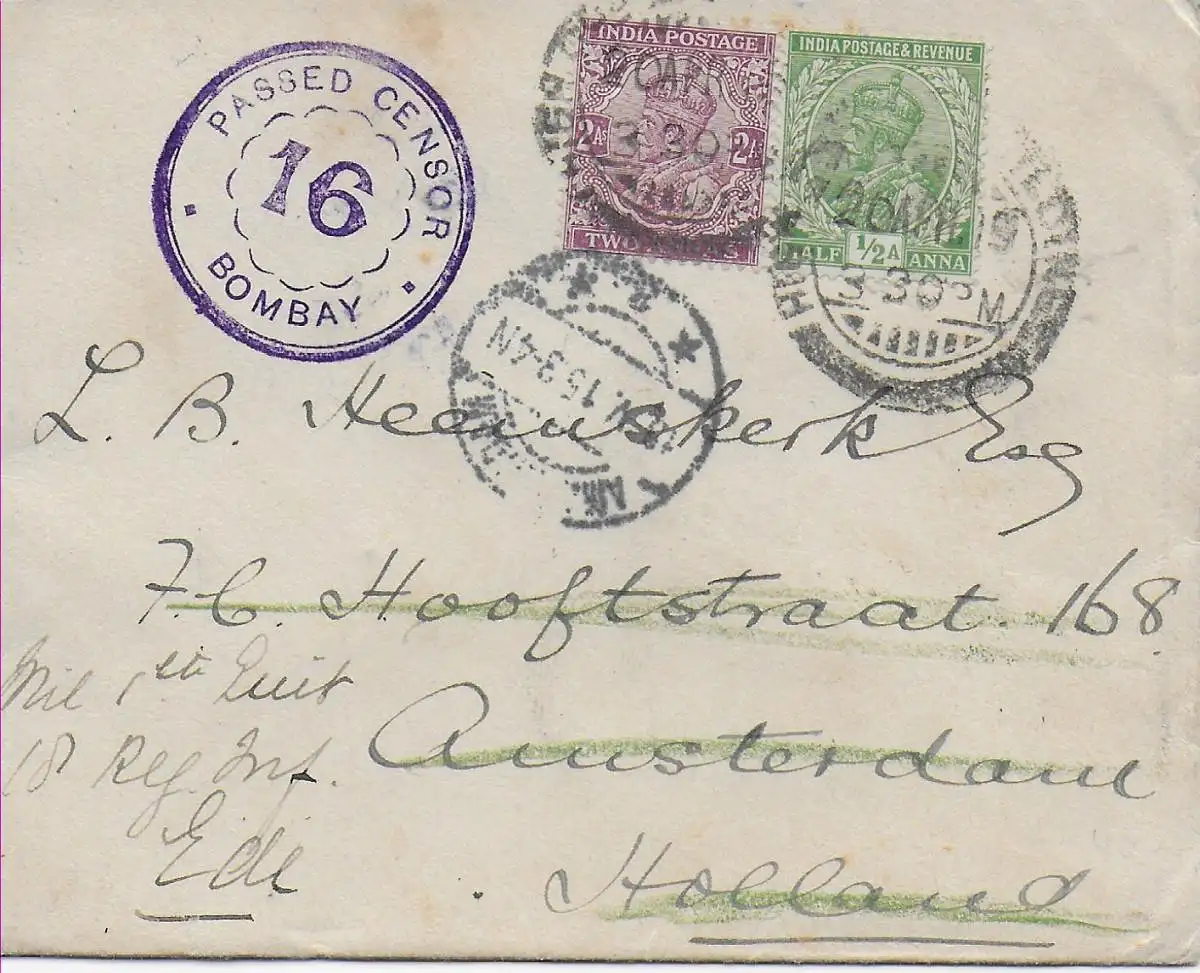 PASSED CENSOR
16
BOMBAY
INDIA POSTAGE
2As 2As
TWO ANNAS
INDIA POSTAGE & REVENUE
HALF 1/2A ANNA
3 30 PM
15 3-4N
L. B. Heemskerk Esq
P.C. Hooftstraat 168
Amsterdam
Holland
Mil 1ste Luit
18 Reg. Inf.
Ede